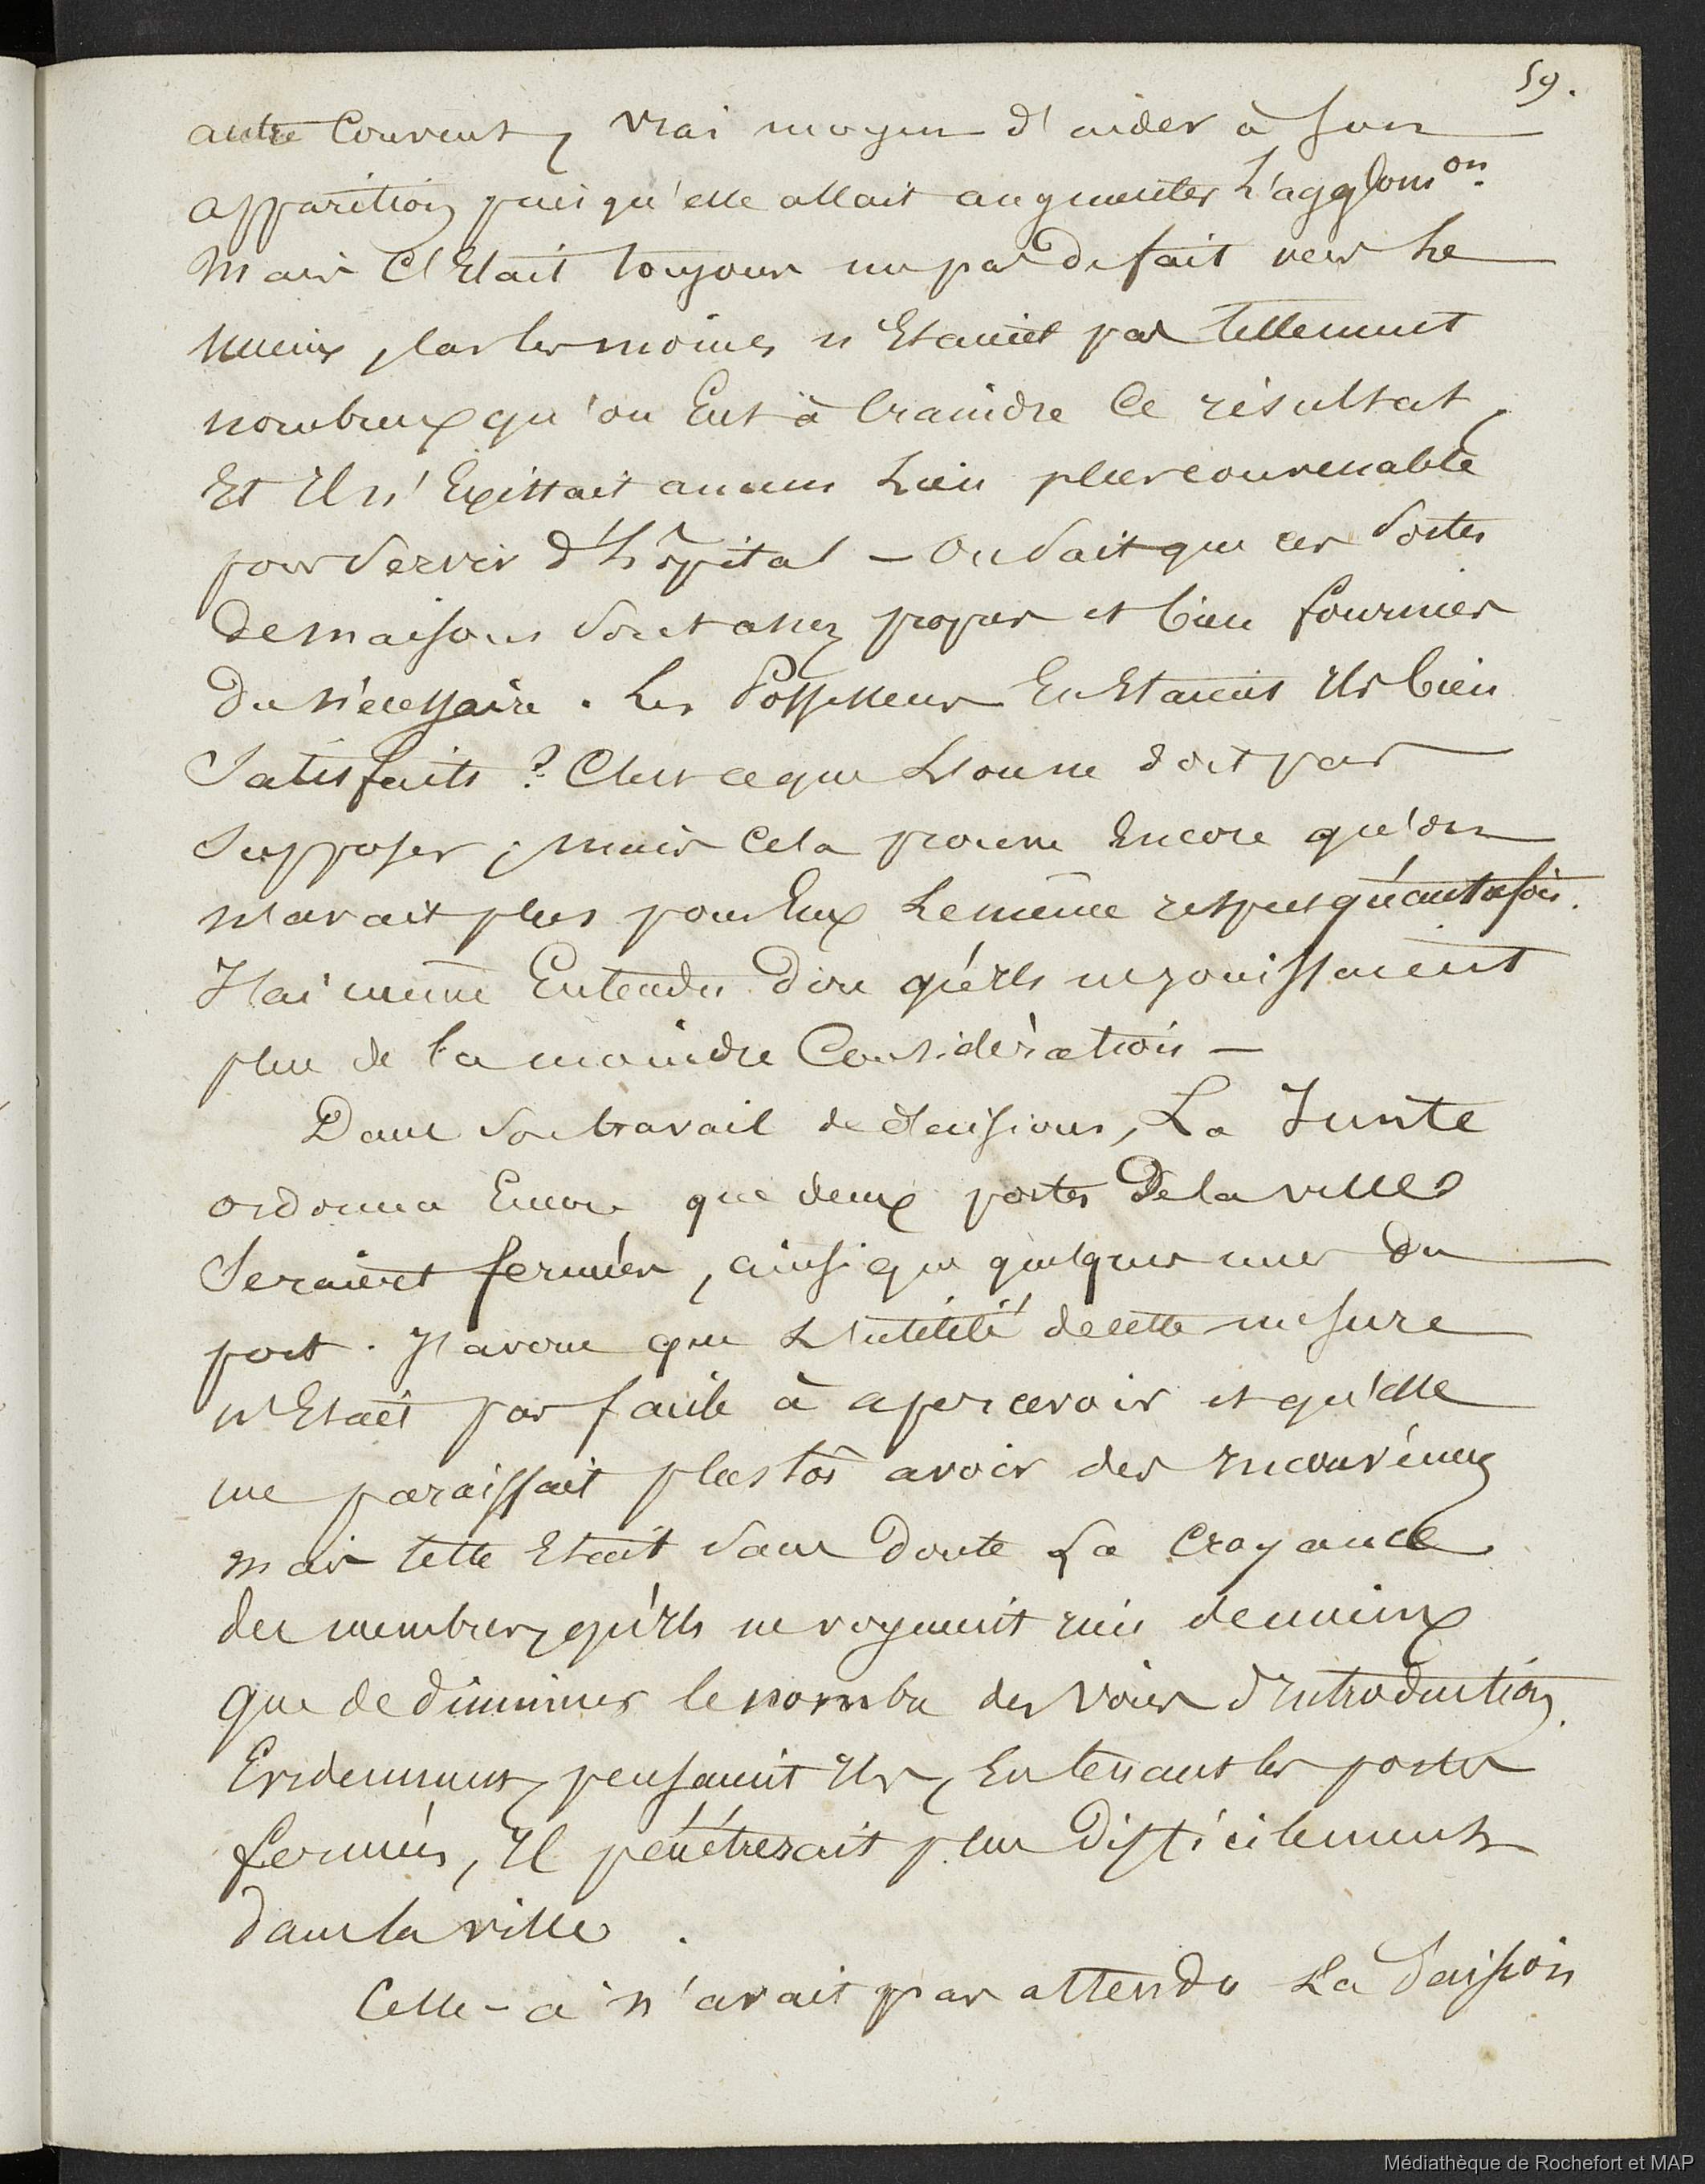 59.
autre Couvent, vrai moyen d'aider à son
apparition puisqu'elle allait augmenter L'agglomon.
Mais C'Etait toujours un pas de fait vers Le
mieux, Car les moines n'Etaient pas tellement
nombreux qu'on Eut à Craindre Ce résultat,
Et Il n'Existait aucun Lieu plus convenable
pour Servir d'hôpital — On Sait que ces Sortes
de maisons Sont assez propres et bien fournies
du nécessaire. Les Possesseurs En Etaient Ils bien
Satisfaits ? C'est ce que L'on ne doit pas
Supposer ; mais Cela prouve Encore qu'on
n'avait plus pour Eux Le même respect qu'autrefois.
J'ai même Entendu dire qu'Ils ne jouissaient
plus de la moindre Considération —
Dans Son travail de décisions, La Junte
ordonna Encore que deux portes De la ville
Seraient fermées, ainsi que quelques unes du
port. J'avoue que L'utilité de cette mesure
n'Etait pas facile à apercevoir et qu'elle
me paraissait plustôt avoir des Inconvéniens
mais telle Etait Sans doute La Croyance
des membres, qu'Ils ne voyaient rien de mieux
que de diminuer le nombre des voies d'Introduction.
Evidemment, pensaient Ils, En tenant les portes
fermées, Il pénétrerait plus difficilement
dans la ville.
Celle-ci n'avait pas attendu La Saison
Médiathèque de Rochefort et MAP